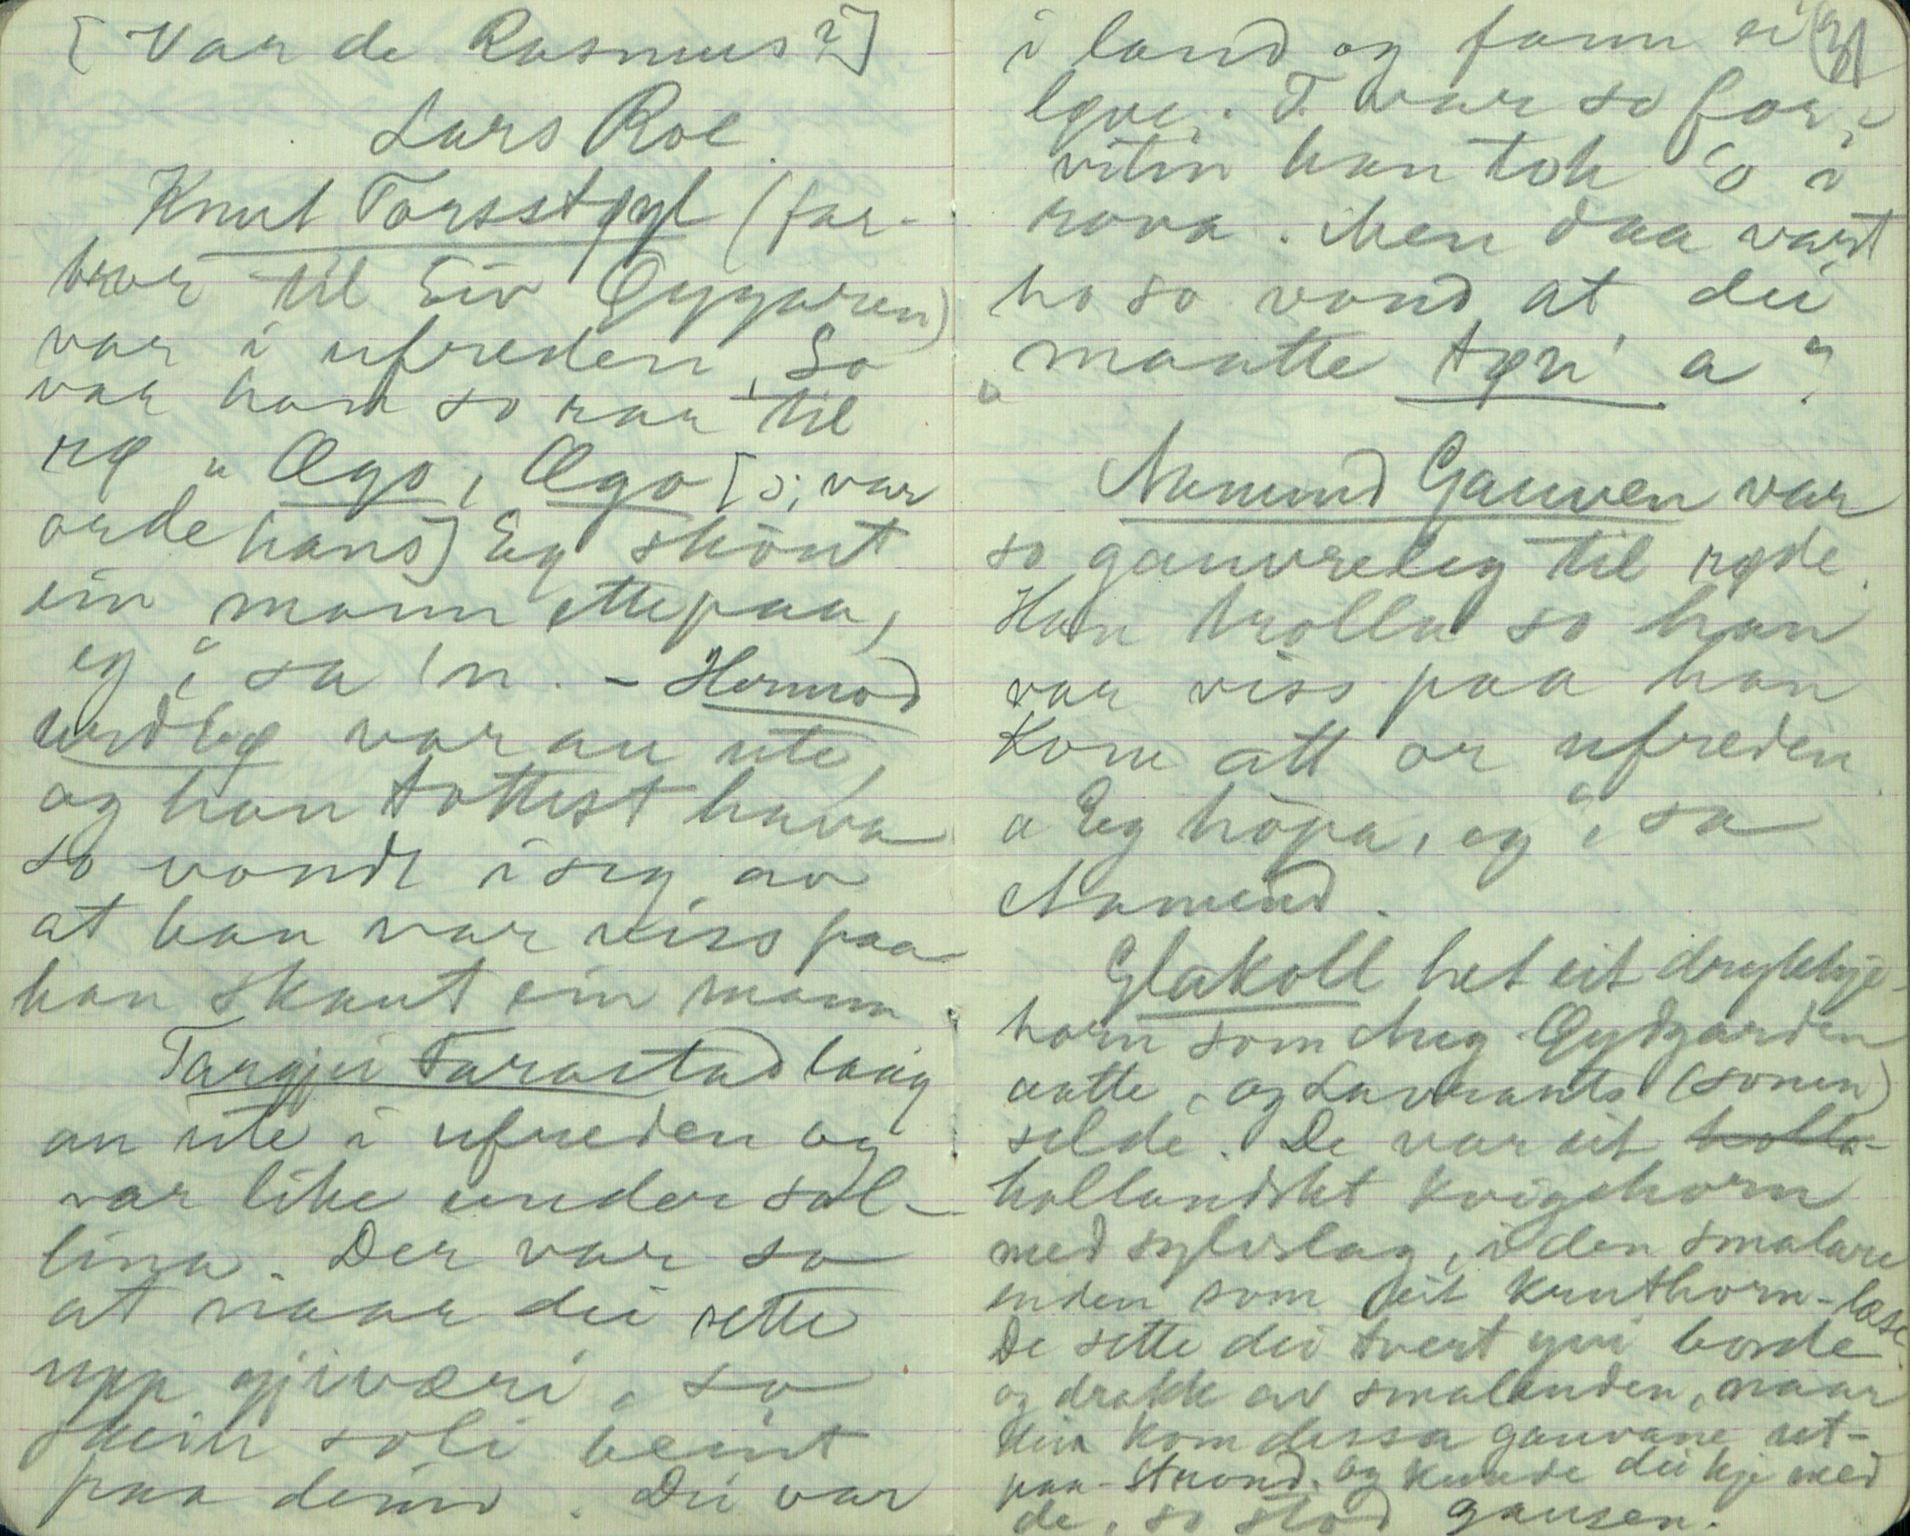 [Var de Rasmus?]
Lars Roe.
Knut Torsstøyl (far-
bror til Eiv Øygaren)
var i ufreden. So
var han so rar til
rø „Øgo, Øgo [ɔ; var
orde hans] Eg skönt
ein mann ettepaa,
eg", sa 'n. – Hermod
var an ute,
og han tottest hava
so vondt i seg av
at han var viss paa
han skaut ein mann.
Targjei Farastad laag
an ute i ufreden og
var like under sol-
lina. Der var so
at naar dei sette
upp gjeværi, so
skein soli beint
paa deim. Dei var
i land og fann ei
løve. T. var so for-
vitin han tok 'o i
rova. Men daa vart
ho so vond at dei
maatte tøri a?
Aamund Gauven var
so gauvreleg til røde.
Han trolla so han
var viss paa han
kom att or ufreden
„Eg höpa, eg", sa
Aamund.
Glakoll het eit drykkje-
horn som Aug Øydgarden
aatte, og Lavrants (sonen)
selde. De var eit holla-
hollandskt kvigehorn
med sylvslag, i den smalare
enden som eit krutthorn-læse.
De sette dei tvert yvi borde
og drakk av smalenden, naar
dessa gauvane ut-
paa-Strond. Og kunde dei kje med
de, so stod gausen.